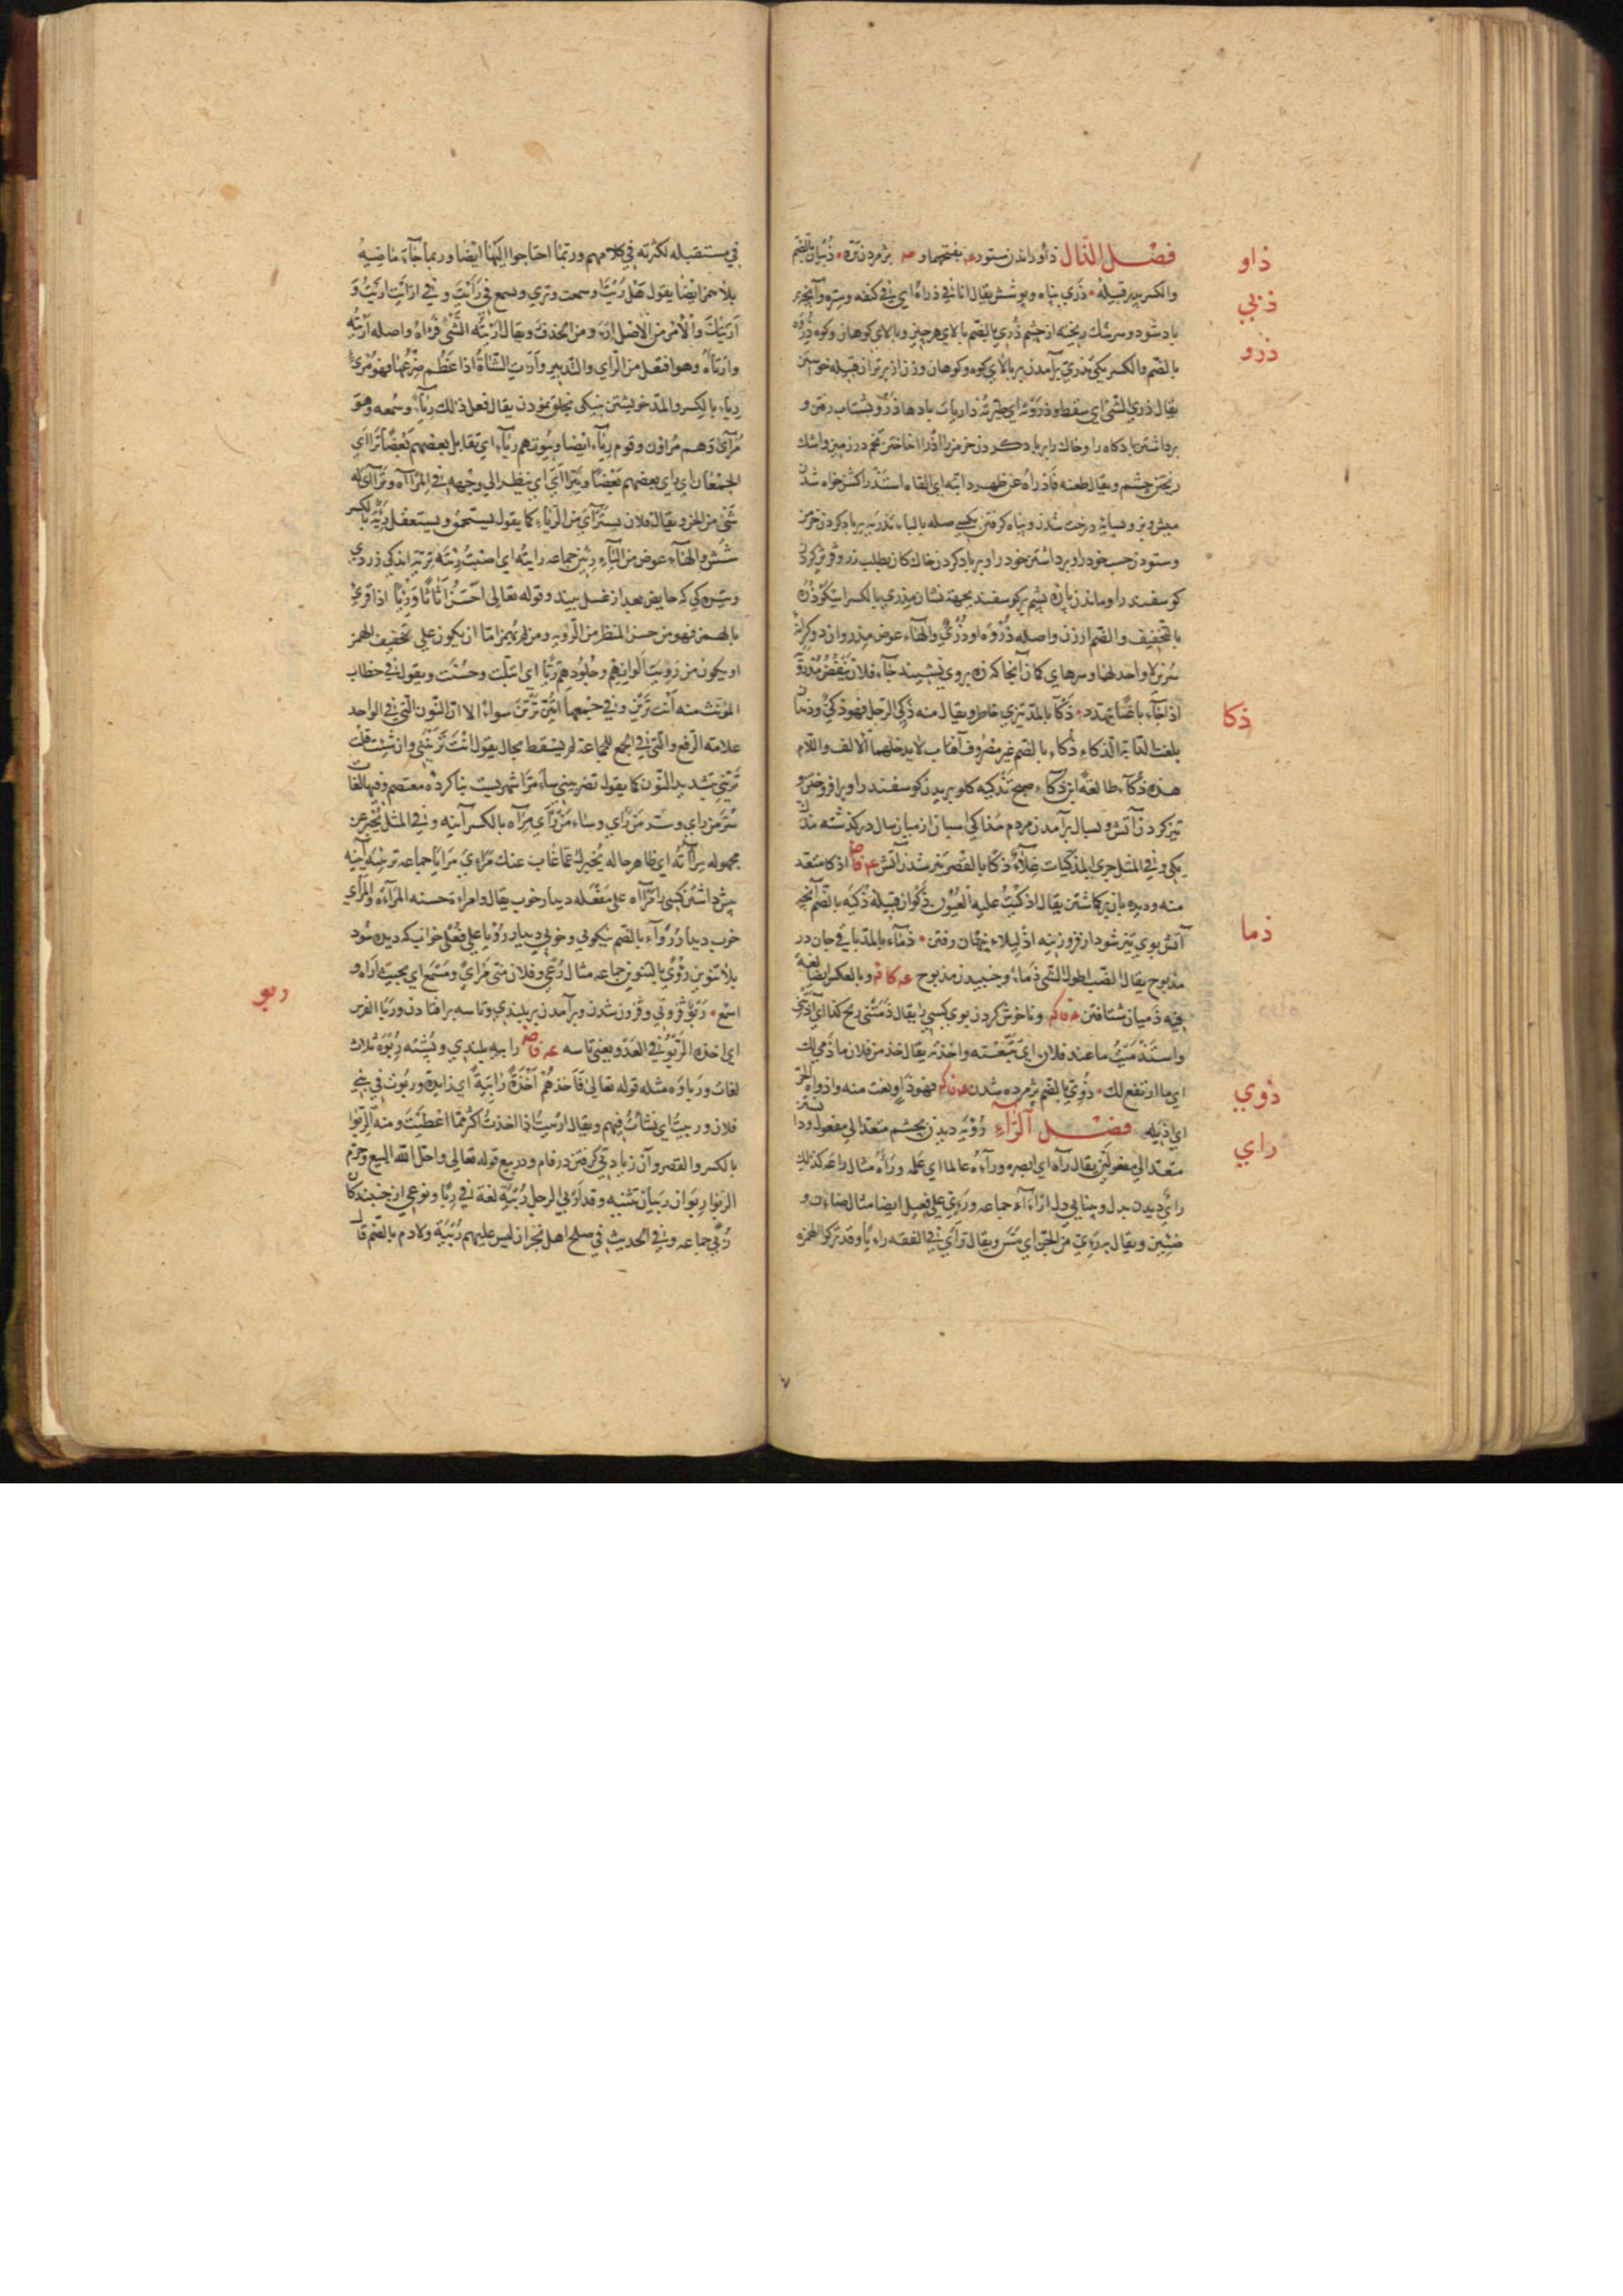 فصل الذال ذأو راندن ستور بفتحهما و پژمردن تره ذبيان بالضم
ذاو
والكسر پدر قبيله ذري پناه و پوشش يقال انا في ذراه اي في كنفه وستره وآنچه بر
ذبي
باد شود و سرشك ريخته از چشم ذري بالضم بالاي هر چيز و بالاي كوهان وكوه ذروه
ذرو
بالضم والكسر يكي تذري برآمدن بر بالاي كوه وكوهان وزن از برتر از قبيله خواستن
يقال ذري الشئ اي سقط وذروته اي طيرته ذاريات بادها ذرو بشتاب رفتن و
برداشتن باد كاه را وخاك را بر باد كردن خرمن را اذرا انداختن تخم در زمين واشك
ريختن چشم ويقال طعنه فاذراه عن ظهر دابته اي القاه استذرا كشن خواه شدن
ميش وبز وبسايه درخت شدن وپناه گرفتن بكسي صله بالباء تذريه بر باد كردن خرمن
وستودن حسب خود را وبرداشتن خود را وبر باد كردن خاك كان بطلب زر
كوسفند را وماندن پاره پشم بر كوسفند بجهة نشان مذري بالكسر
بالتخفيف والضم ارزن واصله ذرو او ذري والهاء عوض مذروان دو كرانه
سرين لا واحد لهما وسرهاي كمان آنجا كه زه بروي نشيند جاء فلان ينفض مذرويه
اذا جاء باغيا يتهدد ذكا بالمد تيزي خاطر ويقال منه ذكي الرجل فهو ذكي
ذكا
بلغت الدابة الذكاء ذكاء بالضم غير مصروف آفتاب لا يدخلها الالف واللام
هذه ذكاء طالعة ابن ذكاء صبح تذكيه كلو بريدن كوسفند را وبر افروختن و
تيز كردن آتش وبسال برآمدن مردم مذاكي اسبان از ميان سال در كذشته مذك
يكي وفي المثل جري المذكيات غلاء ذكا بالقصر تيز شدن آتش اذكا متعد
منه وديده بان بركماشتن يقال اذكيت عليه العيون ذكوان قبيلة ذكيه بالضم آنچه
آتش بوي تيز شود از فروزينه اذليلاء پنهان رفتن ذماء بالمد باقي جان در
ذما
مذبوح يقال الضب اطول الشئ ذماء وجنبيدن مذبوح وبالعكس ايضا لغة
فيه ذميان شتافتن وناخوش كردن بوي كسي را يقال ذمتني ريح كذا اي آذتني
واستذميت ما عند فلان اي تتبعته واخذته يقال خذ من فلان ما ذمي لك
اي ما ارتفع لك ذوي بالضم پژمرده شدن فهو ذاو نعت منه واذواه الحر
ذوي
اي اذبله فصل الراء رؤيه ديدن بچشم متعد الي مفعول ودانستن
متعد الي مفعولين يقال رآه اي ابصره ورآه عالما اي علمه وراءه مثال راعه كذلك
راي
راي ديدن بدل وبينايي دل اراء آراء جماعه ورئي علي فعيل ايضا مثال ضان و
ضئين ويقال به رئي من الجن اي مس ويقال تراي في الفقه رايا وقد تركوا الهمزة
في مستقبله لكثرته في كلامهم وربما احتاجوا اليها ايضا وربما جاء ماضيه
بلا همز ايضا يقول هل ريت او سمعت وتري ويسمع في رايت وفي ارايت اريت و
اريتك والامر من الاصل ارء ومن الحذف ره ويقال اريته الشئ فرآه واصله ارايته
وارتاه وهو افتعل من الراي والتدبير وارأت الشاة اذا عظم ضرعها فهو مرئ
رياء بالكسر والمد خويشتن بنيكي بخلق نمودن يقال فعل ذلك رياء وسمعه وهو
مراى وهم مراؤن وقوم رئاء ايضا وبيوتهم رئاء اي تقابل بعضهم بعضا تراءى
الجمعان اي راي بعضهم بعضا ويتراأى اي ينظر الي وجهه في المرآة وتراآى له
شئ من الجن ويقال فلان يسترآي من الرياء كما يقول يستحمق ويستعقل ريه بالكسر
شش والهاء عوض من الياء رئين جماعه رايته اي اصبت رئته تريه اندكي زردي
وتيره كي كه حايض بعد از غسل بيند وقوله تعالي احسن اثاثا ورئيا اذا قري
بالهمز فهو من حسن المنظر من الرؤيه ومن لم يهمز اما ان يكون علي تخفيف الهمز
او يكون من رويت الوانهم وجلودهم ريا اي امتلت وحسنت ويقول في خطاب
المؤنث منه انت ترين وفي جمعها انتن ترين سواء الا ان النون التي في الواحد
علامة الرفع والتي في الجمع للجماعة لم يسقط بحال يقول انت ترينني وان شئت قلت
تريني بتشديد النون كما يقول تضربيني سامرا شهريست بنا كرده معتصم وفيها لغات
سر من راي وسر من راي وساء من راي مرآه بالكسر آينه وفي المثل تخبر عن
مجهوله مرآته اي ظاهر حاله يخبرك عما غاب عنك مراءي مرايا جماعه ترئيه آينه
پيش داشتن كسي را مرآه علي مفعله ديدار خوب يقال امراة حسنة المرآة والمرأي
خوب ديدار رواء بالضم نيكويي وخوبي ديدار رؤيا علي فعلي خواب كه ديده شود
بلا تنوين رؤي بالتنوين جماعه مثال رعي وفلان مني بمراي ومسمع اي بحيث اراه و
اسمع ربو فزوني وفزون شدن وبرآمدن بر بلندي وتاسه بر افتادن وربا الفرس
ربو
اي اخذه الربو في العدو يعني تاسه رابيه بلندي وپشته ربوه ثلاث
لغات ورباوه مثله قوله تعالي فاخذهم اخذة رابية اي زايدة وربوت في بني
فلان وربيت اي نشات فيهم ويقال اربيت اذا اخذت اكثر مما اعطيت ومنه الربوا
بالكسر والقصر وآن زيادتي كرفتن در فام ودر بيع قوله تعالي واحل الله البيع وحرم
الربوا ربوان ربيان تثنيه وقد اربي الرجل ربيه لغة في ربا ونوعي از جنبندكان
ربي جماعه وفي الحديث في صلح اهل نجران ليس عليهم ربية ولا دم بالضم قا